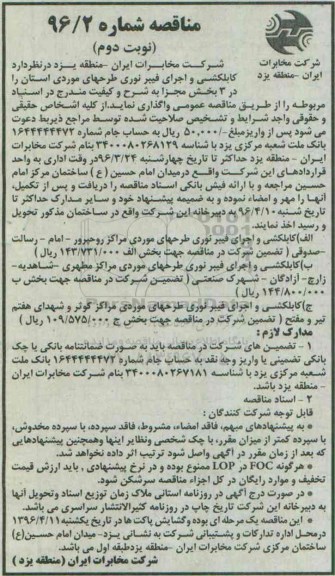 مناقصه شماره ۹۶/۲
(نوبت دوم)
شرکت مخابرات
ایران -منطقه یزد
شرکت مخابرات ایران -منطقه یزد درنظردارد
کابلکشی و اجرای فیبر نوری طرحهای موردی استان را
در ۳ بخش مجزا به شرح و کیفیت مندرج در اسناد
مربوطه را از طریق مناقصه عمومی واگذاری نماید.از کلیه اشخاص حقیقی
و حقوقی واجد شرایط و تشخیص صلاحیت شده توسط مراجع ذیربط دعوت
می شود پس از واریزمبلغ ۵۰,۰۰۰/- ریال به حساب جام شماره ۱۶۴۴۴۴۴۴۷۲
بانک ملت شعبه مرکزی یزد با شناسه ۳۴۰۰۰۸۰۲۶۸۱۲۹ بنام شرکت مخابرات
ایران - منطقه یزد حداکثر تا تاریخ چهارشنبه ۹۶/۳/۲۴در وقت اداری به واحد
قراردادهای این شرکت واقع درمیدان امام حسین (ع) ساختمان مرکز امام
حسین مراجعه و با ارائه فیش بانکی اسناد مناقصه را دریافت و پس از تکمیل،
آنها را مهر و امضاء نموده و به ضمیمه پیشنهاد خود و سایر مدارک حداکثر تا
تاریخ شنبه ۹۶/۴/۱۰به دبیرخانه این شرکت واقع در ساختمان مذکور تحویل
و رسید اخذ نمایند.
الف)کابلکشی و اجرای فیبر نوری طرحهای موردی مراکز روحپرور - امام - رسالت
-صدوقی ( تضمین شرکت در مناقصه جهت بخش الف ۱۴۳/۷۳۱/۰۰۰ ریال )
ب)کابلکشی و اجرای فیبر نوری طرحهای موردی مراکز مطهری -شاهدیه-
زارچ- آزادگان – شهرک صنعتی ( تضمین شرکت در مناقصه جهت بخش ب
۱۴۴/۸۰۰/۰۰۰ ریال )
ج)کابلکشی و اجرای فیبر نوری طرحهای موردی مراکز کوثر و شهدای هفتم
تیر و مفتح ( تضمین شرکت در مناقصه جهت بخش ج ۱۰۹/۵۷۵/۰۰۰ ریال )
مدارک لازم :
۱- تضمین های شرکت در مناقصه باید به صورت ضمانتنامه بانکی یا چک
بانکی تضمینی یا واریز وجه نقد به حساب جام شماره ۱۶۴۴۴۴۴۴۷۲ بانک ملت
شعبه مرکزی یزد با شناسه ۳۴۰۰۰۸۰۲۶۷۱۸۱ بنام شرکت مخابرات ایران
- منطقه یزد باشد.
۲- اسناد مناقصه
قابل توجه شرکت کنندگان :
* به پیشنهادهای مبهم، فاقد امضاء، مشروط، فاقد سپرده، با سپرده مخدوش،
با سپرده کمتر از میزان مقرر، با چک شخصی ونظایر اینها وهمچنین پیشنهادهایی
که بعد از زمان مقرر در آگهی واصل شود ترتیب اثر داده نخواهد شد.
* هرگونه FOC در LOP ممنوع بوده و در نرخ پیشنهادی , باید ارزش قیمت
تخفیف و موارد رایگان در کل اجزاء مناقصه سرشکن شود.
* در صورت درج آگهی در روزنامه استانی ملاک زمان توزیع اسناد وتحویل آنها
به دبیرخانه این شرکت تاریخ چاپ در روزنامه کثیرالانتشار سراسری می باشد.
* این مناقصه یک مرحله ای بوده وگشایش پاکت ها در تاریخ یکشنبه ۱۳۹۶/۴/۱۱
درمحل اداره تدارکات و پشتیبانی شرکت به نشانی-یزد- میدان امام حسین(ع)
ساختمان مرکزی شرکت مخابرات ایران -منطقه یزدطبقه اول می باشد.
شرکت مخابرات ایران (منطقه یزد )